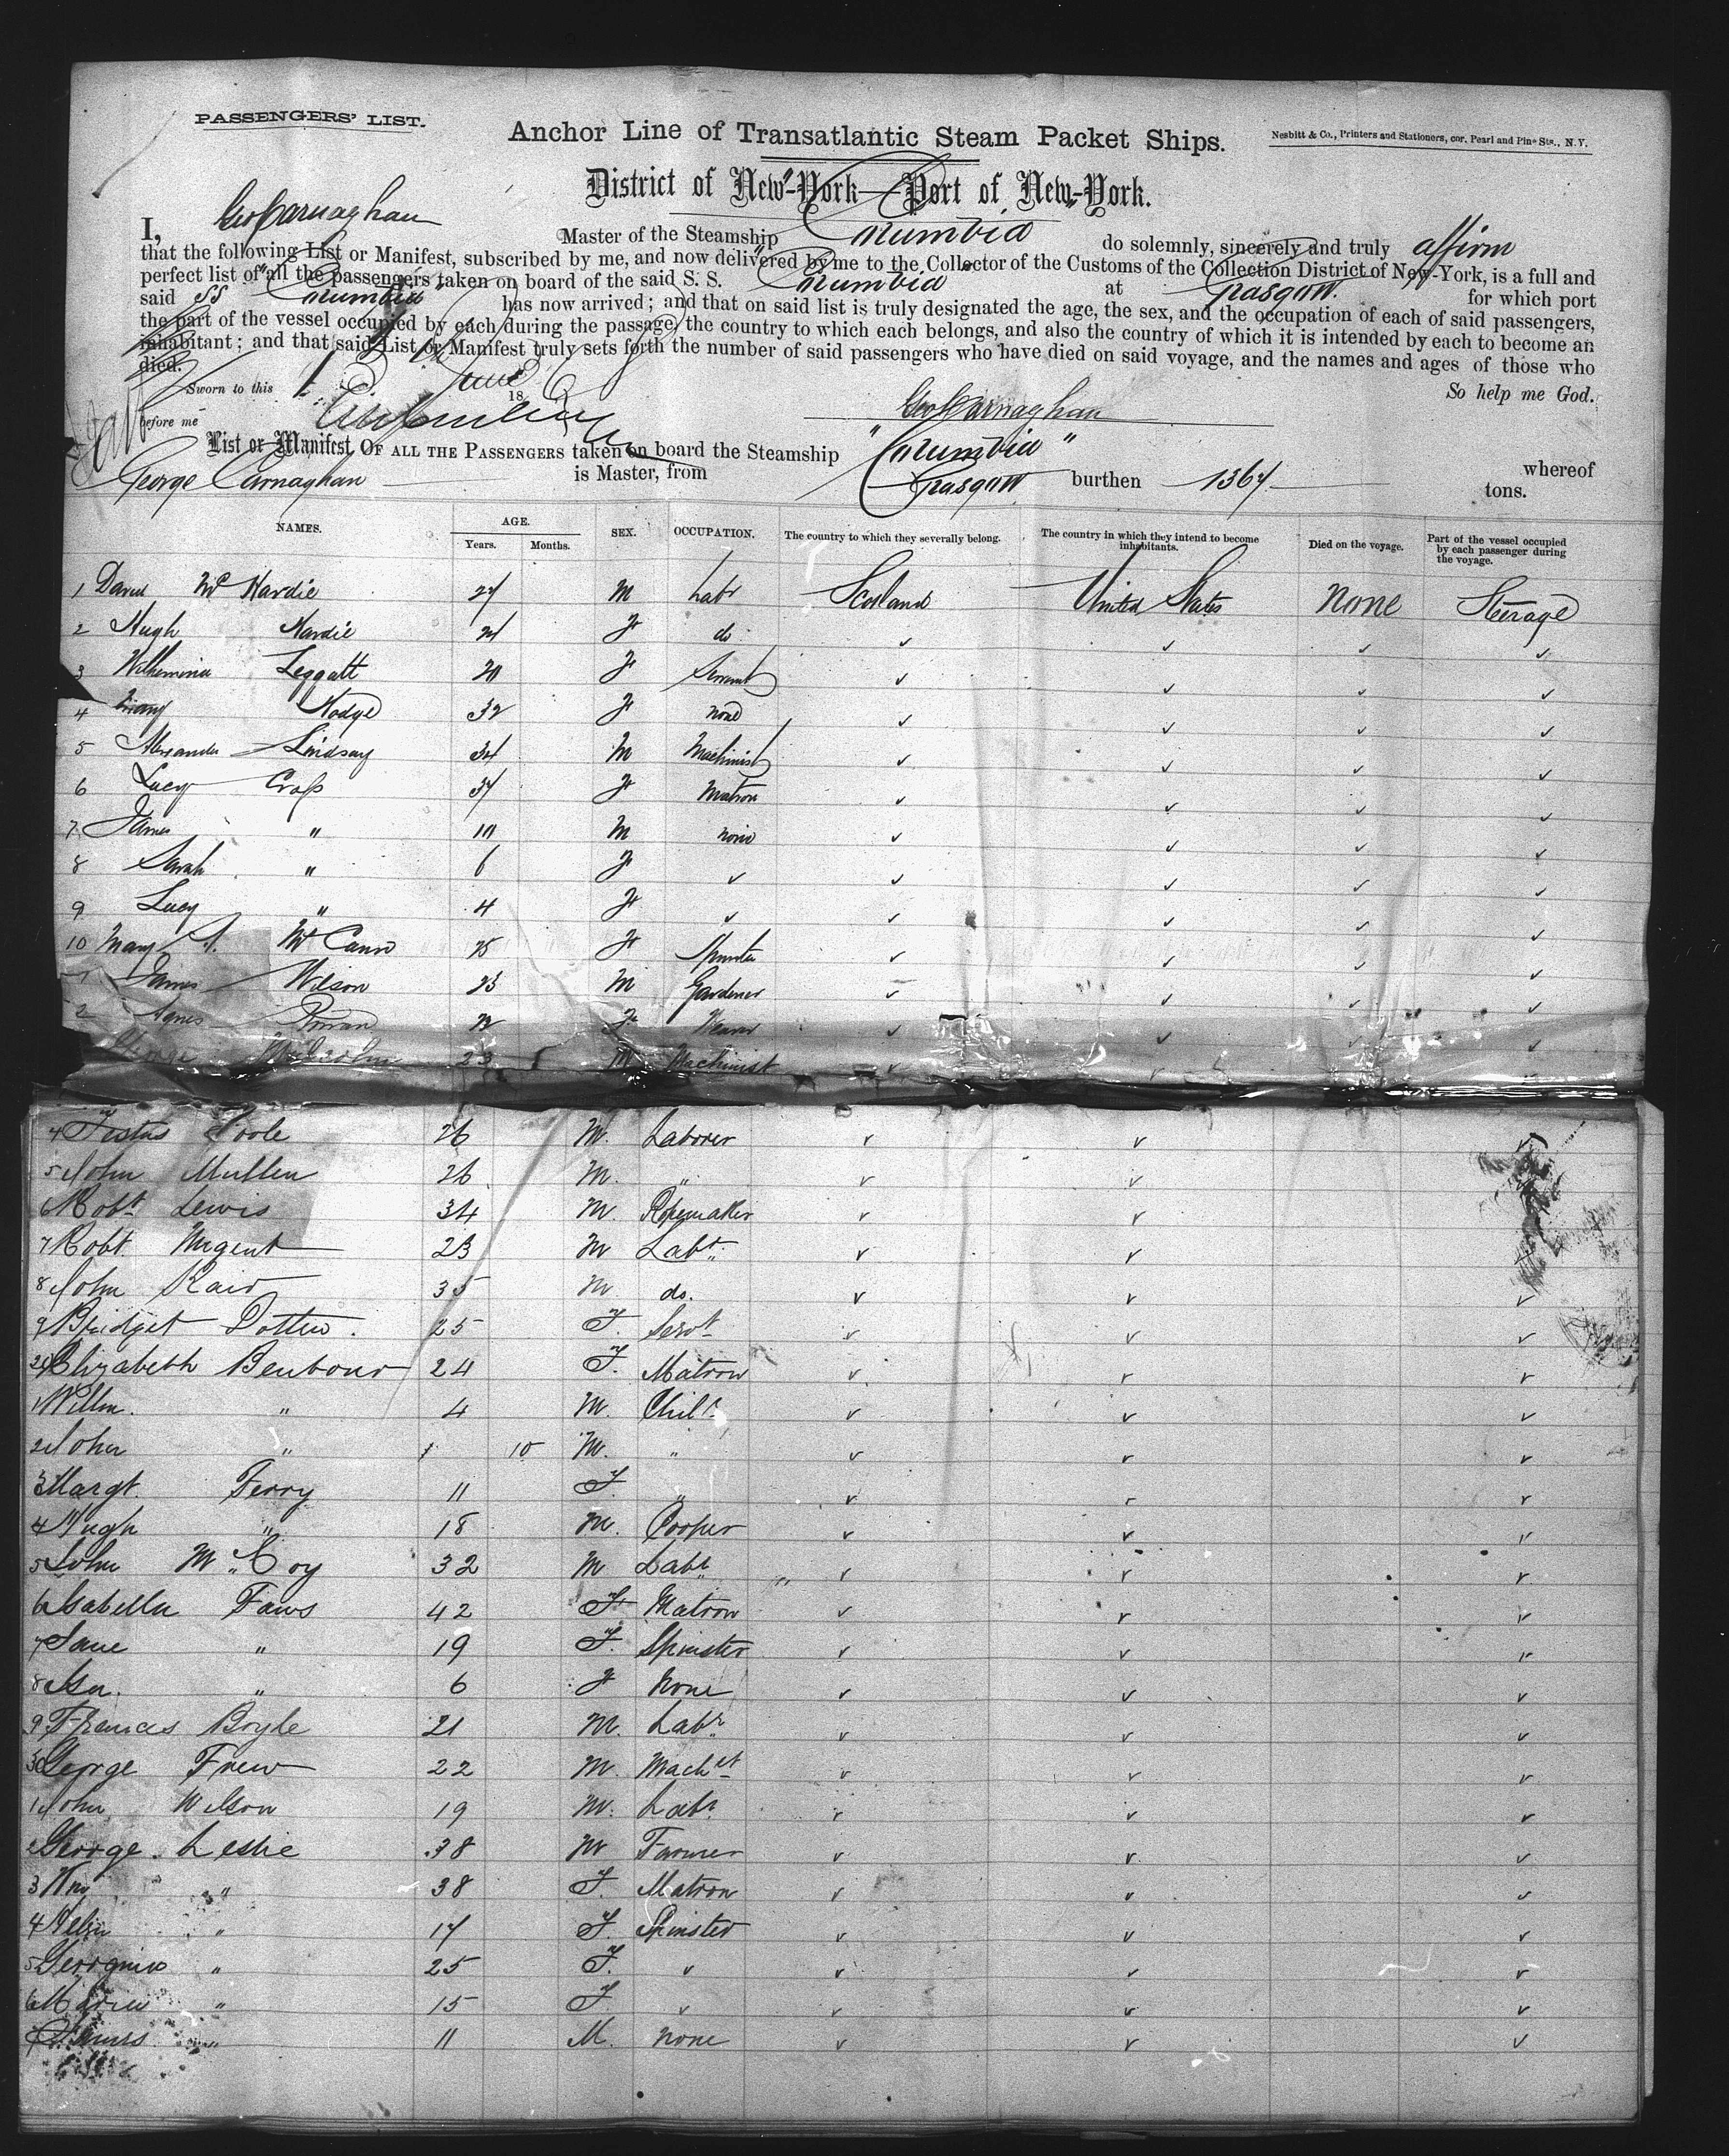 PASSENGERS' LIST.
Anchor Line of Transatlantic Steam Packet Ships.
Nesbitt & Co., Printers and Stationers, cor. Pearl and Pine Sts., N. Y.
District of New-York—Port of New-York.
I, Geo Carnaghan Master of the Steamship "Columbia" do solemnly, sincerely and truly affirm
that the following List or Manifest, subscribed by me, and now delivered by me to the Collector of the Customs of the Collection District of New-York, is a full and
perfect list of all the passengers taken on board of the said S. S. "Columbia" at Glasgow. for which port
said SS "Columbia" has now arrived; and that on said list is truly designated the age, the sex, and the occupation of each of said passengers,
the part of the vessel occupied by each during the passage, the country to which each belongs, and also the country of which it is intended by each to become an
inhabitant; and that said List or Manifest truly sets forth the number of said passengers who have died on said voyage, and the names and ages of those who
died. So help me God.
Sworn to this 13 June 18
before me Geo Carnaghan
List or Manifest OF ALL THE PASSENGERS taken on board the Steamship "Columbia" whereof
George Carnaghan is Master, from Glasgow burthen 1367 tons.
NAMES. AGE. Years. Months. SEX. OCCUPATION. The country to which they severally belong. The country in which they intend to become inhabitants. Died on the voyage. Part of the vessel occupied by each passenger during the voyage.
1 David McHardie 27 M Labr Scotland United States None Steerage
2 Hugh Hardie F do ✓ ✓ ✓ ✓
3 Wilhemina Leggatt 20 F Servant ✓ ✓ ✓ ✓
4 Mary Hodge 32 F none ✓ ✓ ✓ ✓
5 Alexander Lindsay 34 M Machinist ✓ ✓ ✓ ✓
6 Lucy Cross 37 F Matron ✓ ✓ ✓ ✓
7 James " 10 M none ✓ ✓ ✓ ✓
8 Sarah " 6 F ✓ ✓ ✓ ✓ ✓
9 Lucy " 4 F ✓ ✓ ✓ ✓ ✓
10 Mary A. McCann 25 F Spinster ✓ ✓ ✓ ✓
1 James Wilson 23 M Gardener ✓ ✓ ✓ ✓
2 Agnes Rowan F Weaver ✓ ✓ ✓ ✓
George 23 M Machinist ✓ ✓
4 Festus Toole 26 M. Laborer ✓ ✓ ✓
5 John Mullen 26 M. " ✓ ✓
6 Robt Lewis 34 M. Ropemaker ✓ ✓
7 Robt Nugent 23 M Labr ✓ ✓
8 John 35 M do. ✓ ✓ ✓
9 Bridget 25 F. Servt ✓ ✓ ✓
20 Elizabeth 24 F. Matron ✓ ✓ ✓
1 Willm. " 4 M. Chil ✓ ✓ ✓
2 John " 1 10 M. " ✓ ✓ ✓
3 Margt Ferry 11 F. " ✓ ✓ ✓
4 Hugh " 18 M. Cooper ✓ ✓ ✓
5 John McCoy 32 M Labr ✓ ✓ ✓
6 Isabella Faws 42 F Matron ✓ ✓ ✓
7 Jane " 19 F. Spinster ✓ ✓ ✓
8 Isa. " 6 F None ✓ ✓ ✓
9 Francis Boyle 21 M. Labr ✓ ✓ ✓
30 George Frew 22 M. Machst ✓ ✓ ✓
1 John Wilson 19 M. Labr ✓ ✓ ✓
2 George Leslie 38 M Farmer ✓ ✓ ✓
3 " 38 F. Matron ✓ ✓ ✓
4 Helen " 17 F. Spinster ✓ ✓ ✓
5 Georgina " 25 F. ✓ ✓ ✓ ✓
6 " 15 F. ✓ ✓ ✓ ✓
7 James " 11 M. none ✓ ✓ ✓